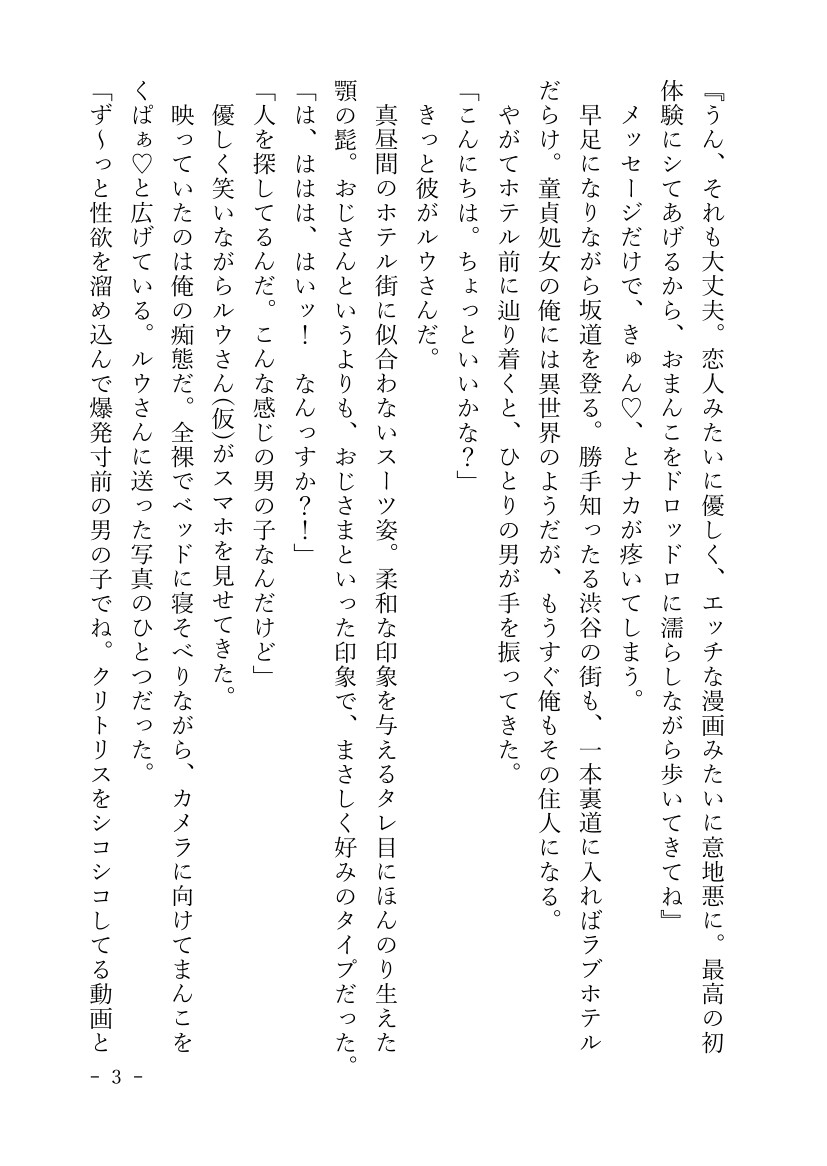 『うん、それも大丈夫。恋人みたいに優しく、エッチな漫画みたいに意地悪に。最高の初
体験にシてあげるから、おまんこをドロッドロに濡らしながら歩いてきてね』
メッセージだけで、きゅん♡、とナカが疼いてしまう。
早足になりながら坂道を登る。勝手知ったる渋谷の街も、一本裏道に入ればラブホテル
だらけ。童貞処女の俺には異世界のようだが、もうすぐ俺もその住人になる。
やがてホテル前に辿り着くと、ひとりの男が手を振ってきた。
「こんにちは。ちょっといいかな?」
きっと彼がルウさんだ。
真昼間のホテル街に似合わないスーツ姿。柔和な印象を与えるタレ目にほんのり生えた
顎の髭。おじさんというよりも、おじさまといった印象で、まさしく好みのタイプだった。
「は、ははは、はいッ! なんっすか?!」
「人を探してるんだ。こんな感じの男の子なんだけど」
優しく笑いながらルウさん(仮)がスマホを見せてきた。
映っていたのは俺の痴態だ。全裸でベッドに寝そべりながら、カメラに向けてまんこを
くぱぁ♡と広げている。ルウさんに送った写真のひとつだった。
「ず～っと性欲を溜め込んで爆発寸前の男の子でね。クリトリスをシコシコしてる動画と
- 3 -